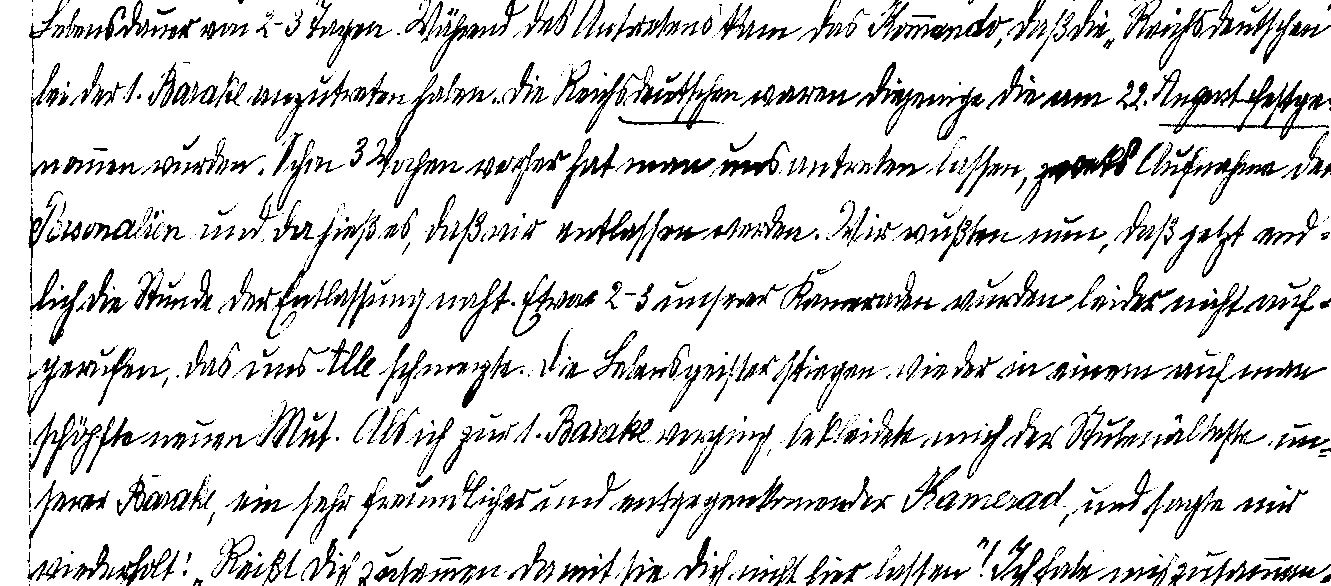 Lebensdauer von 2-3 Tagen. Während des Antretens kam das Kommando, daß die „Reichsdeutschen
bei der 1. Barake anzutreten haben. Die Reichsdeutschen waren diejenige die am 22. August festge-
nom̅en wurden. Schon 3 Wochen vorher hat man uns antreten lassen, zwecks Aufnahme der
Personalien und da hieß es, daß wir entlassen werden. Wir wußten nun, daß jetzt end-
lich die Stunde der Entlassung naht. Etwa 2-3 unserer Kameraden wurden leider nicht auf-
gerufen, das uns Alle schmerzte. Die Lebensgeister stiegen wieder in einem auf man
schöpfte neuen Mut. Als ich zur 1. Barake ging, bekleidete mich der Stubenälteste un-
serer Barake, ein sehr freundlicher und entgegenkom̅ender Kamerad, und sagte mir
wiederholt: „Reißt Dich zusam̅en damit sie Dich nicht hier lassen"! Ich habe mich zusam̅en